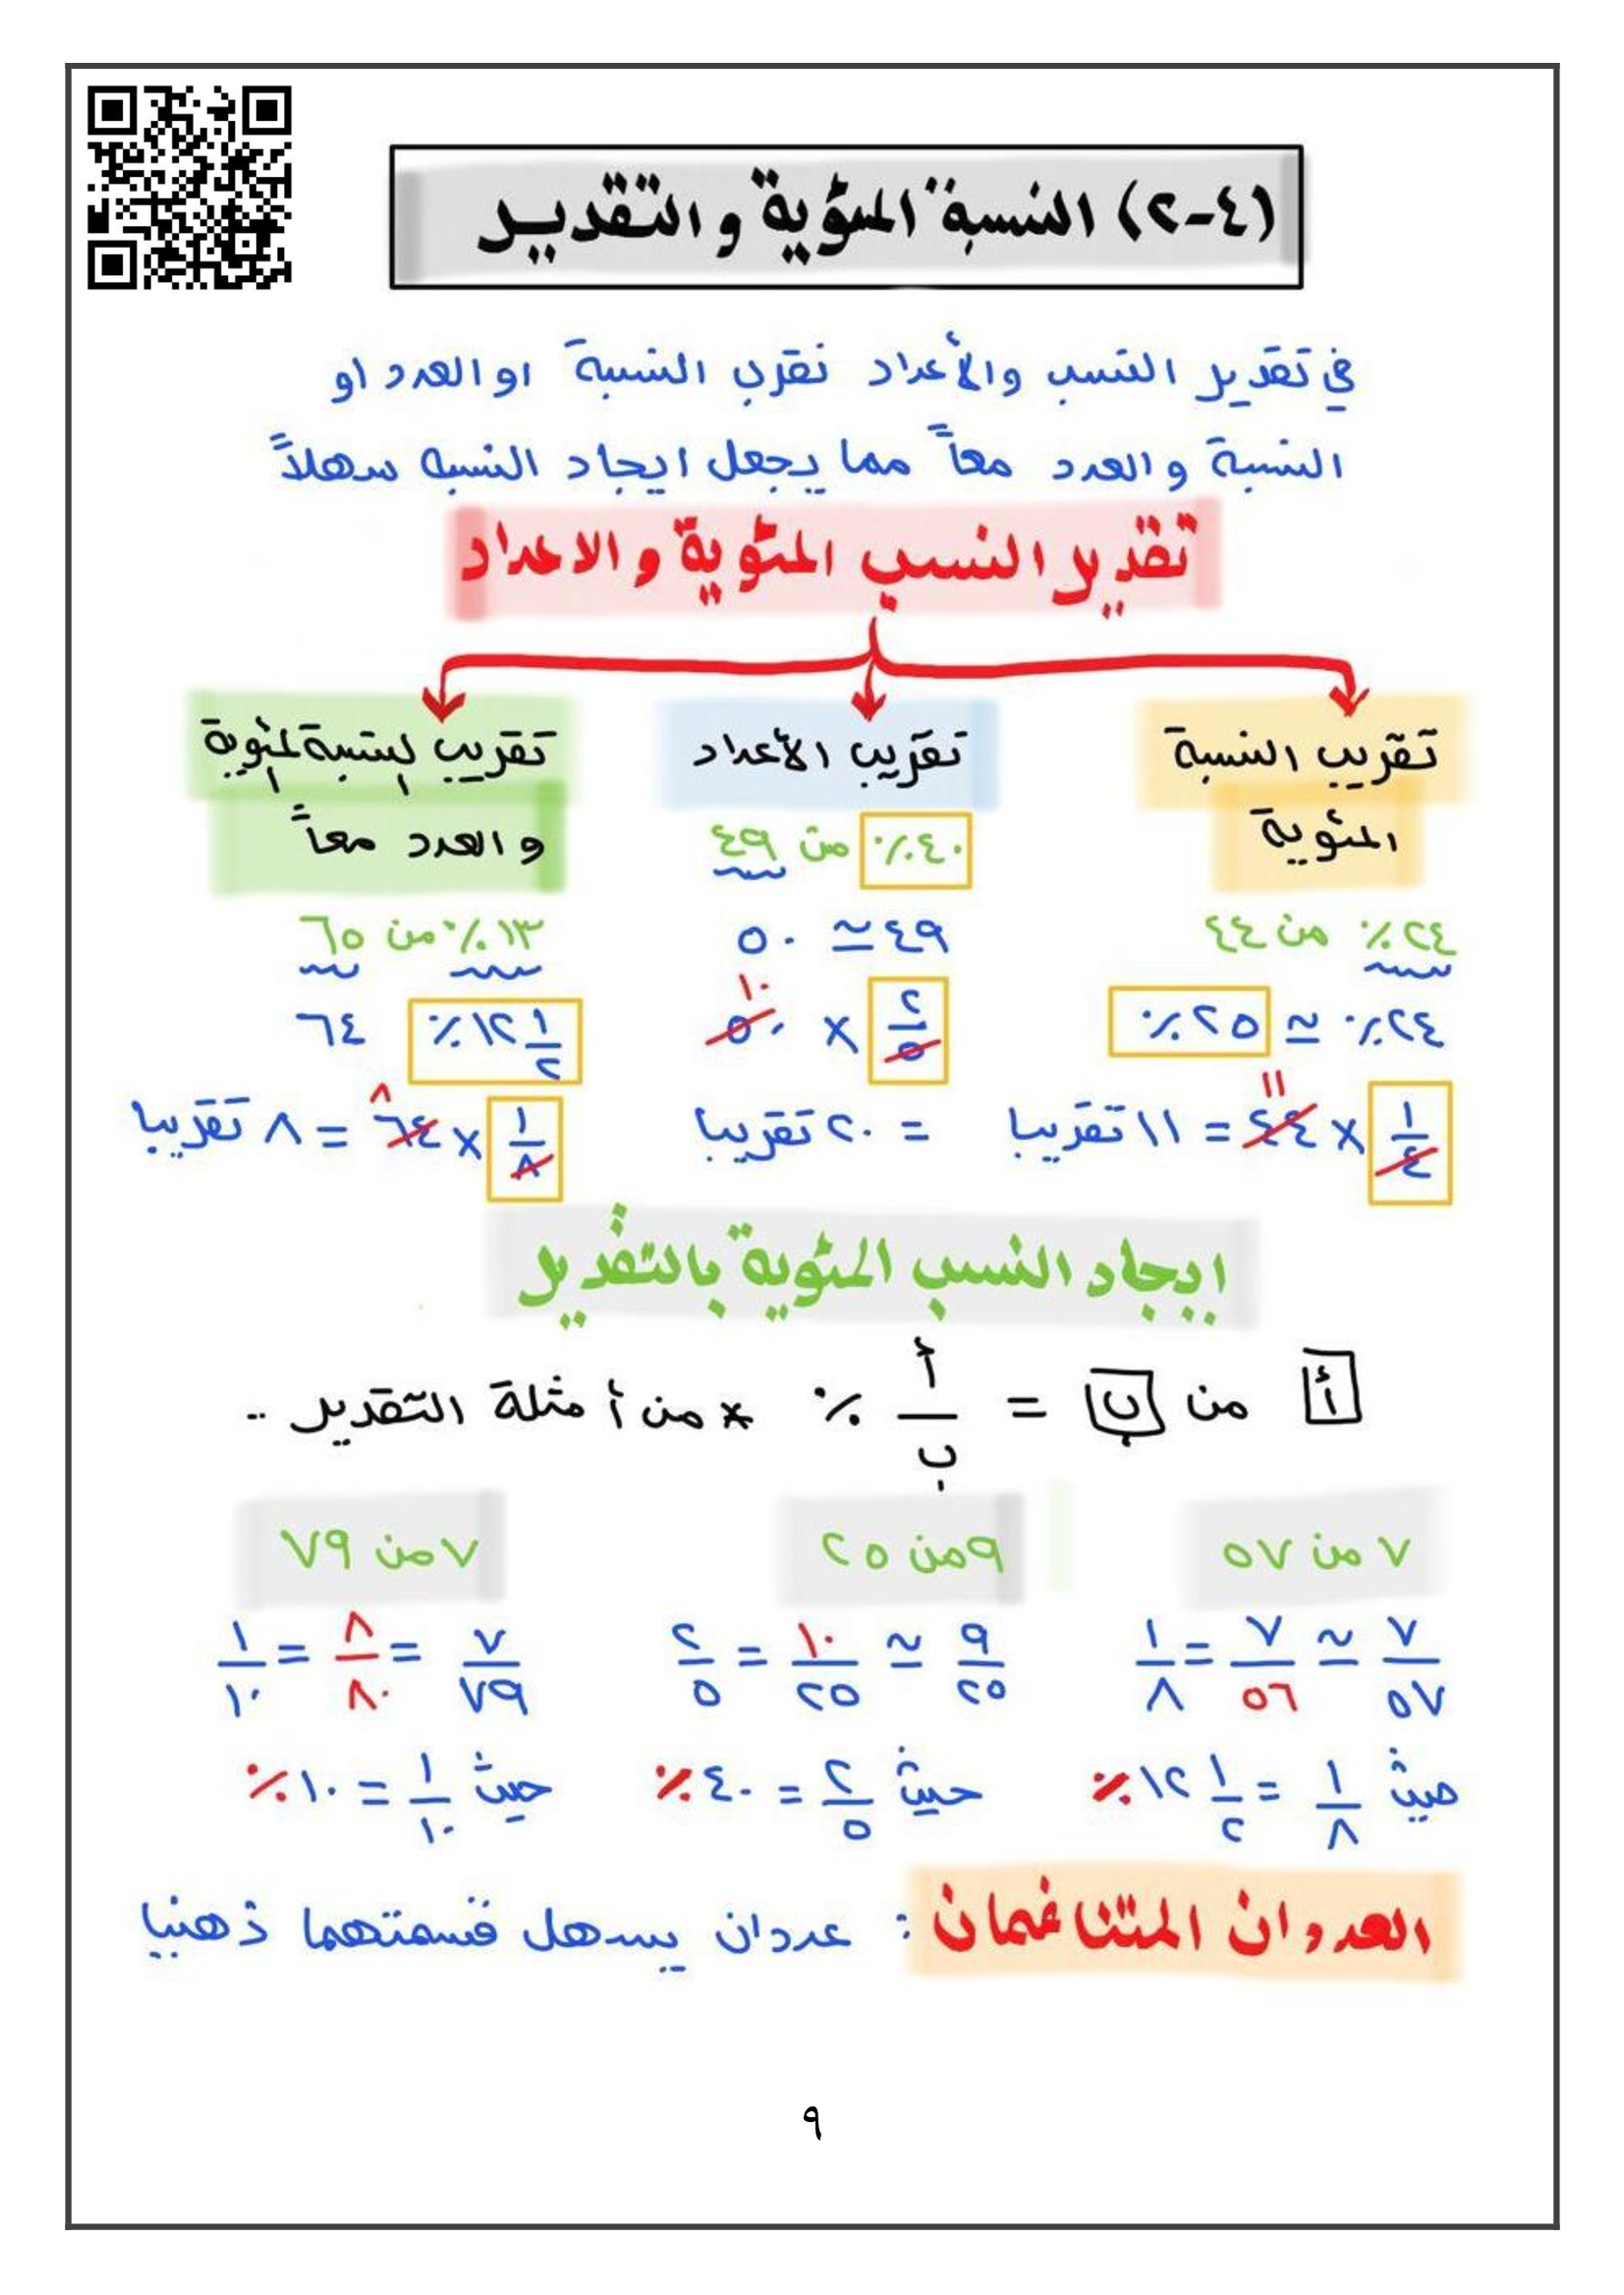 (٤-٢) النسبة المئوية والتقدير
في تقدير النسب والأعداد نقرب النسبة او العدد او
النسبة والعدد معاً مما يجعل ايجاد النسبه سهلاً
تقدير النسب المئوية والاعداد
تقريب النسبة
المئوية
٢٤٪ من ٤٤
٢٤٪ ≃ ٢٥٪
١/٤ × ٤٤ = ١١ تقريبا
١١
تقريب الأعداد
٤٠٪ من ٤٩
٤٩ ≃ ٥٠
٢/٥ × ٥٠
١٠
= ٢٠ تقريبا
تقريب النسبة المئوية
والعدد معاً
١٣٪ من ٦٥
١٢ ١/٢ ٪ ٦٤
١/٨ × ٦٤ = ٨ تقريبا
٨
ايجاد النسب المئوية بالتقدير
أ من ب = أ/ب ٪ * من أمثلة التقدير ..
٧ من ٥٧
٧/٥٧ ≃ ٧/٥٦ = ١/٨
حيث ١/٨ = ١٢ ١/٢ ٪
٩ من ٢٥
٩/٢٥ ≃ ١٠/٢٥ = ٢/٥
حيث ٢/٥ = ٤٠٪
٧ من ٧٩
٧/٧٩ = ٨/٨٠ = ١/١٠
حيث ١/١٠ = ١٠٪
العددان المتناغمان : عددان يسهل قسمتهما ذهنيا
٩